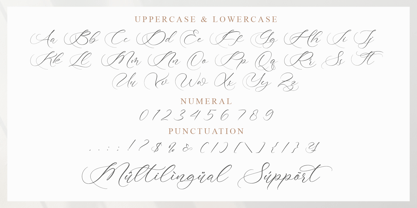 UPPERCASE & LOWERCASE
Aa Bb Cc Dd Ee Ff Gg Hh Ii Jj
Kk Ll Mm Nn Oo Pp Qq Rr Ss Tt
Uu Vv Ww Xx Yy Zz
NUMERAL
0 1 2 3 4 5 6 7 8 9
PUNCTUATION
Multilingual Support